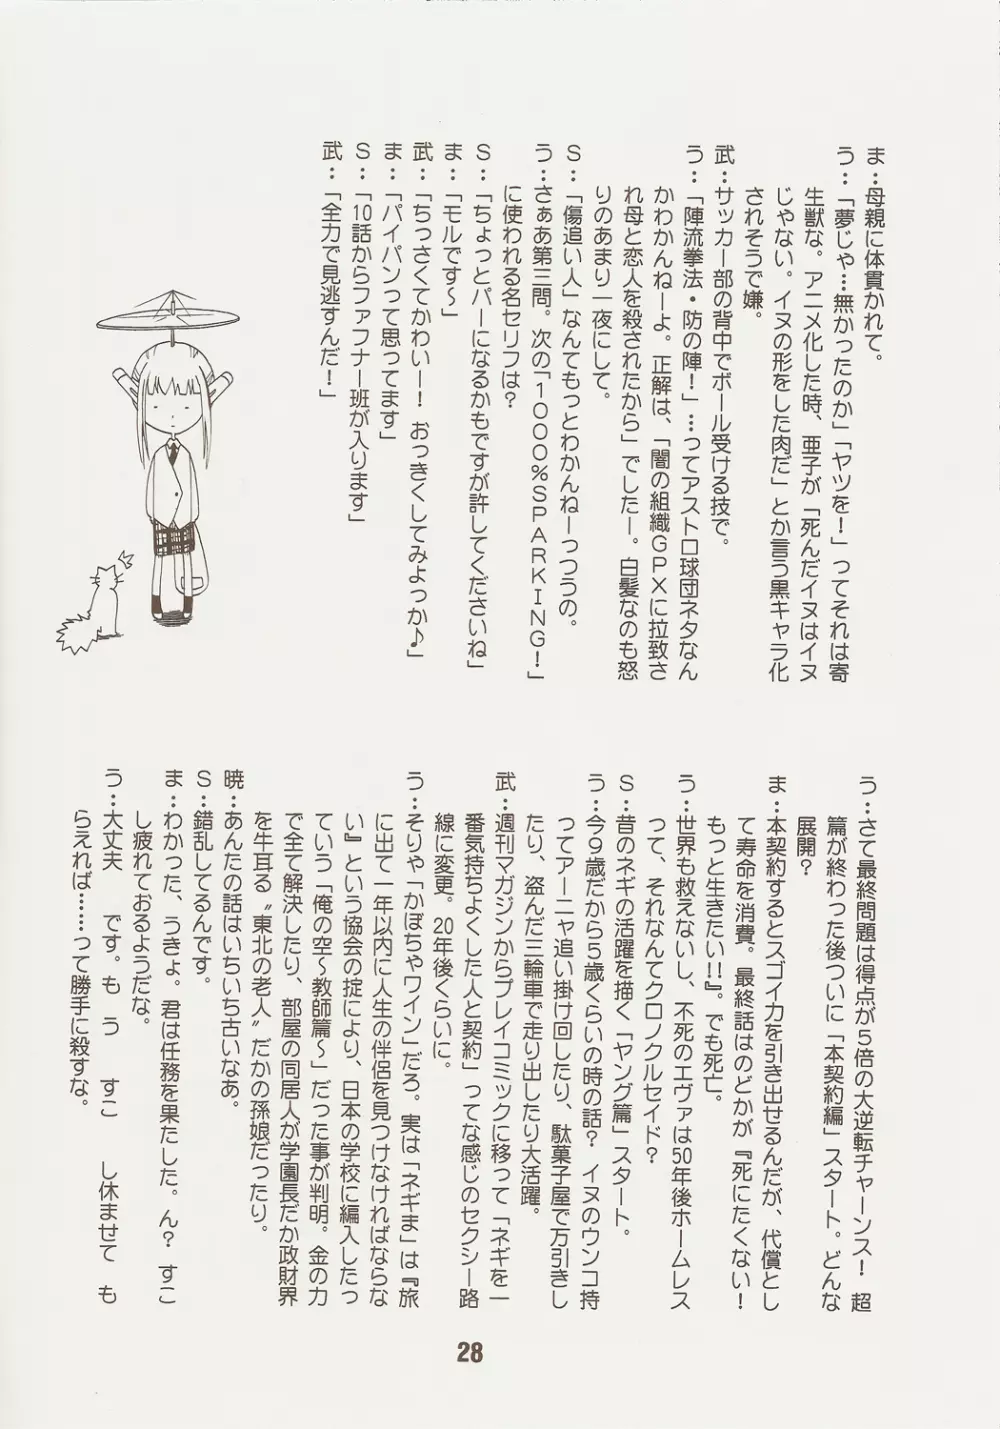 ま：母親に体貫かれて。
う：「夢じゃ…無かったのか」「ヤツを！」ってそれは寄
生獣な。アニメ化した時、亜子が「死んだイヌはイヌ
じゃない。イヌの形をした肉だ」とか言う黒キャラ化
されそうで嫌。
武：サッカー部の背中でボール受ける技で。
う：「陣流拳法・防の陣！」…ってアストロ球団ネタなん
かわかんねーよ。正解は、「闇の組織ＧＰＸに拉致さ
れ母と恋人を殺されたから」でしたー。白髪なのも怒
りのあまり一夜にして。
Ｓ：「傷追い人」なんてもっとわかんねーっつうの。
う：さぁあ第三問。次の「１０００％ＳＰＡＲＫＩＮＧ！」
に使われる名セリフは？
Ｓ：「ちょっとパーになるかもですが許してくださいね」
ま：「モルです～」
武：「ちっさくてかわいー！ おっきくしてみよっか♪」
ま：「パイパンって思ってます」
Ｓ：「10話からファフナー班が入ります」
武：「全力で見逃すんだ！」
う：さて最終問題は得点が５倍の大逆転チャーンス！ 超
篇が終わった後ついに「本契約編」スタート。どんな
展開？
ま：本契約するとスゴイ力を引き出せるんだが、代償とし
て寿命を消費。最終話はのどかが『死にたくない！
もっと生きたい!!』。でも死亡。
う：世界も救えないし、不死のエヴァは50年後ホームレス
って、それなんてクロノクルセイド？
Ｓ：昔のネギの活躍を描く「ヤング篇」スタート。
う：今９歳だから５歳くらいの時の話？ イヌのウンコ持
つてアーニャ追い掛け回したり、駄菓子屋で万引きし
たり、盗んだ三輪車で走り出したり大活躍。
武：週刊マガジンからプレイコミックに移って「ネギを一
番気持ちよくした人と契約」ってな感じのセクシー路
線に変更。20年後くらいに。
う：そりゃ「かぼちゃワイン」だろ。実は「ネギま」は『旅
に出て一年以内に人生の伴侶を見つけなければならな
い』という協会の掟により、日本の学校に編入したっ
ていう「俺の空～教師篇～」だった事が判明。金の力
で全て解決したり、部屋の同居人が学園長だか政財界
を牛耳る〝東北の老人〟だかの孫娘だったり。
暁：あんたの話はいちいち古いなあ。
Ｓ：錯乱してるんです。
ま：わかった、うきょ。君は任務を果たした。ん？ すこ
し疲れておるようだな。
う：大丈夫　です。も　う　すこ　し休ませて　も
らえれば………って勝手に殺すな。
28